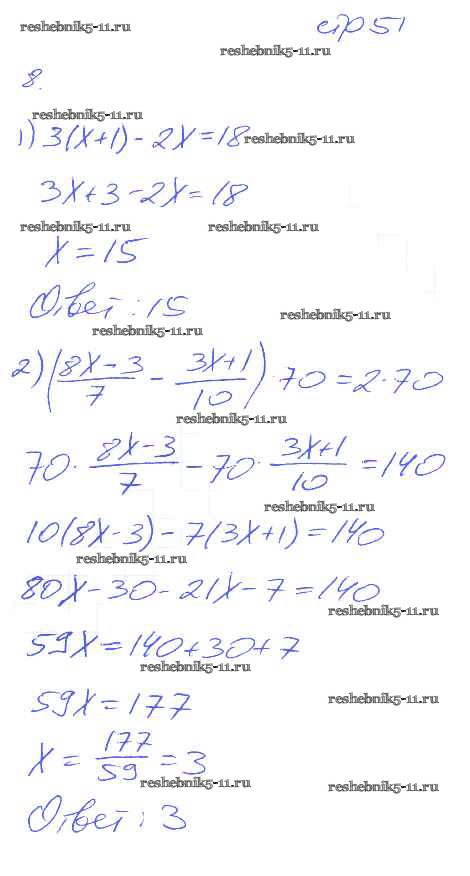 reshebnik5-11.ru стр 51
reshebnik5-11.ru
8.
reshebnik5-11.ru
1) 3(x+1) - 2x = 18 reshebnik5-11.ru
3x + 3 - 2x = 18
reshebnik5-11.ru reshebnik5-11.ru
x = 15
Ответ: 15 reshebnik5-11.ru
reshebnik5-11.ru
2) ((8x-3)/7 - (3x+1)/10) · 70 = 2·70
reshebnik5-11.ru
70 · (8x-3)/7 - 70 · (3x+1)/10 = 140
reshebnik5-11.ru
10(8x-3) - 7(3x+1) = 140
reshebnik5-11.ru
80x - 30 - 21x - 7 = 140
reshebnik5-11.ru
59x = 140 + 30 + 7
reshebnik5-11.ru
59x = 177 reshebnik5-11.ru
x = 177/59 = 3
reshebnik5-11.ru reshebnik5-11.ru
Ответ: 3